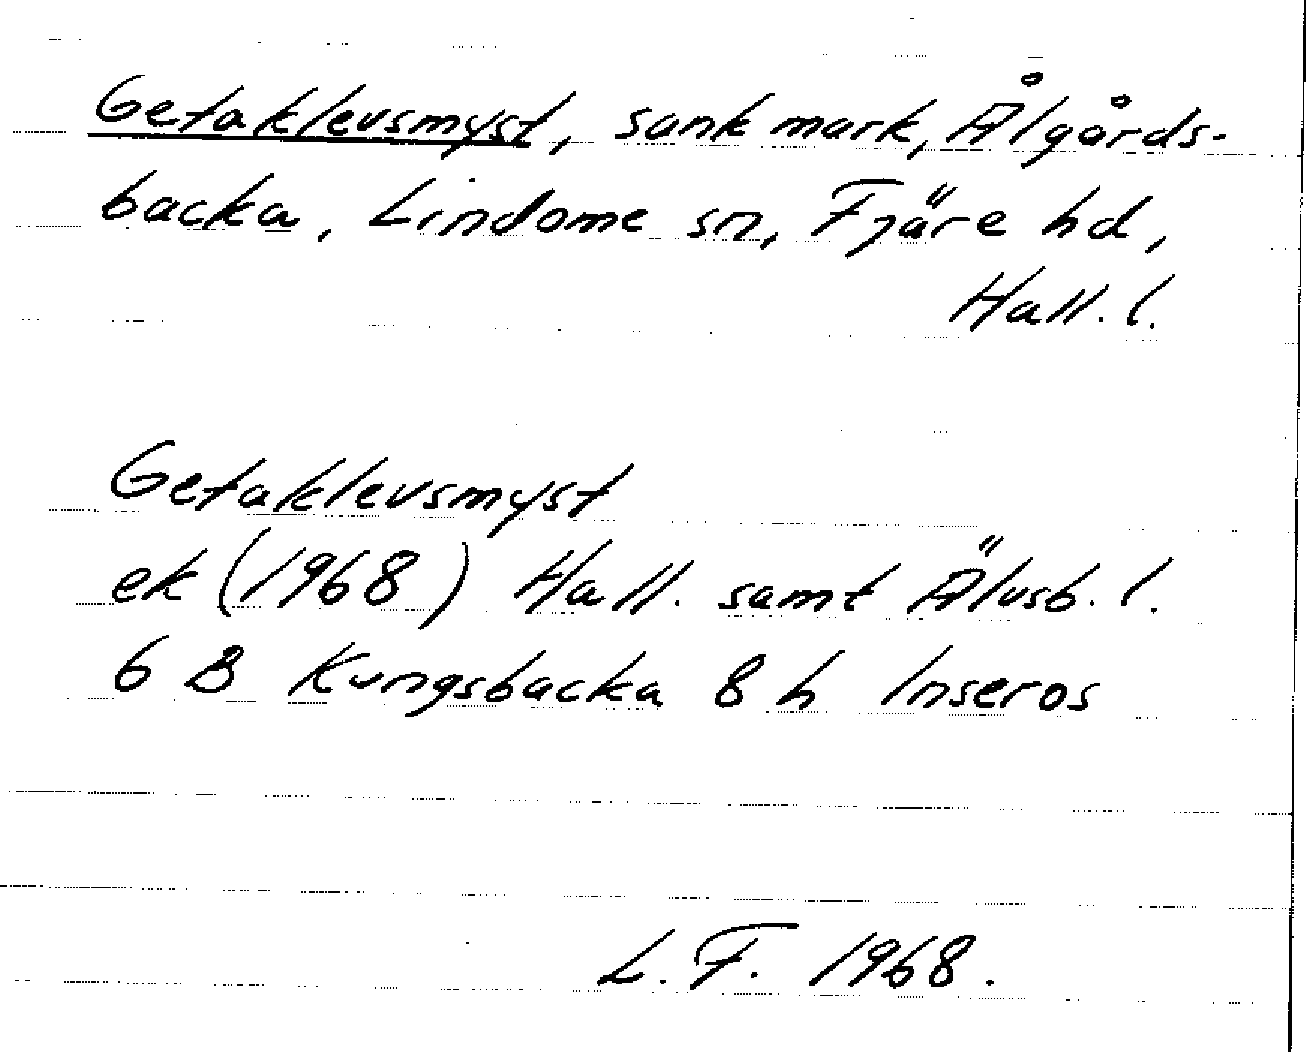 Getaklevsmyst, sank mark, Ålgårds-
backa, Lindome sn, Fjäre hd,
Hall. l.
Getaklevsmyst
ek (1968) Hall. samt Älvsb. l.
6 B Kungsbacka 8 h Inseros
L. F. 1968.